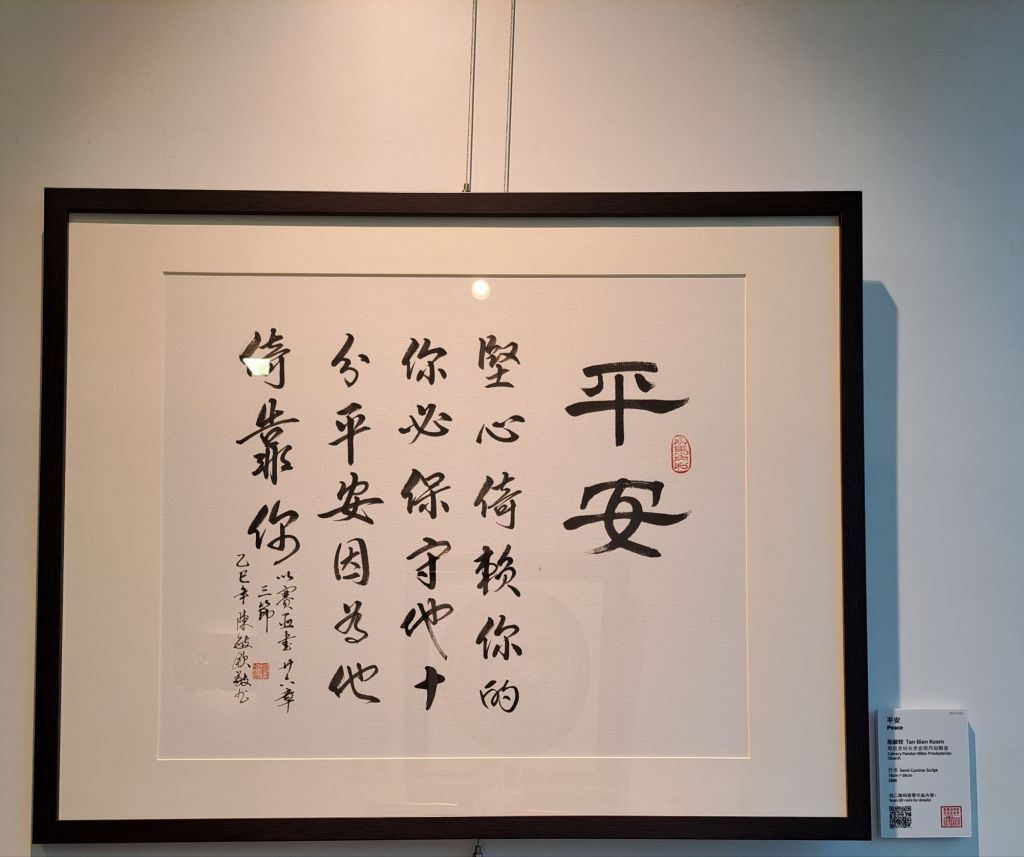 平安
堅心倚賴你的
你必保守他十
分平安因為他
倚靠你
以賽亞書廿六章
三節
乙巳年陳敏欽敬书
平安
Peace
Tan Bien Keem
Calvary Pandan Bible-Presbyterian
Church
行书 Semi Cursive Script
扫二维码查看作品内容:
Scan QR code for details: